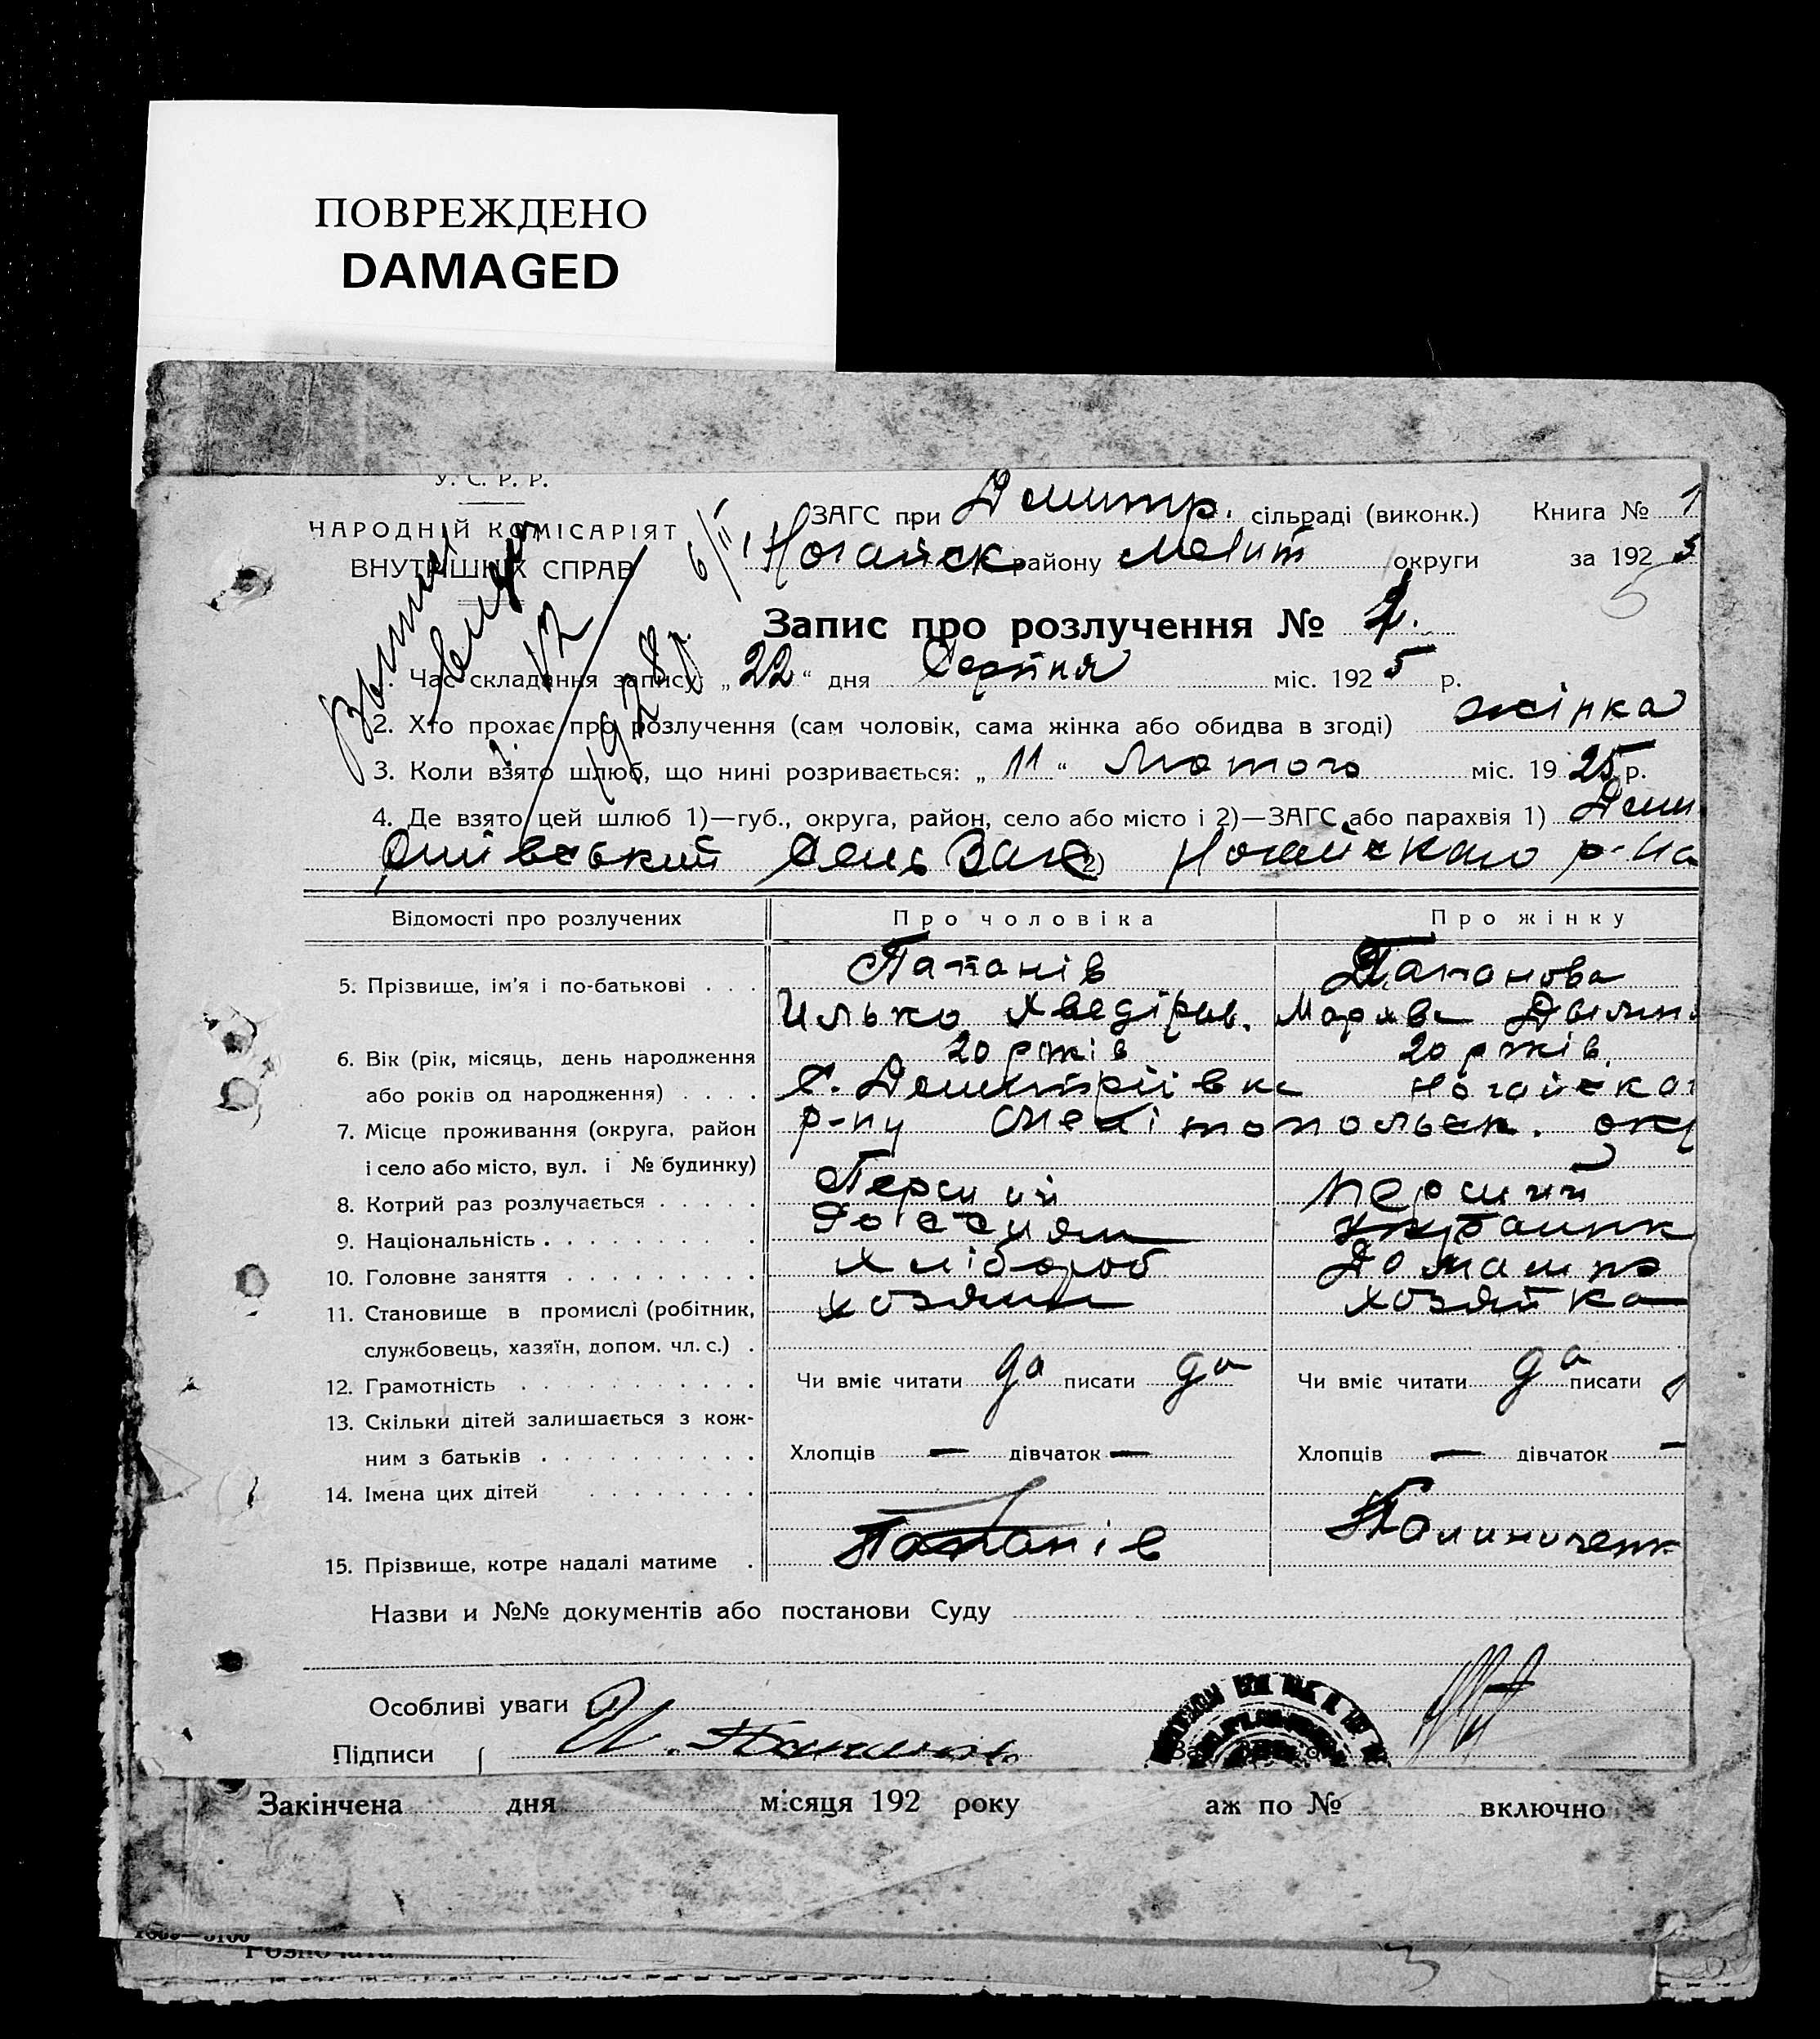 ПОВРЕЖДЕНО
DAMAGED
У. С. Р. Р.
НАРОДНІЙ КОМІСАРІЯТ
ВНУТРІШНІХ СПРАВ
ЗАГС при Дмитр. сільраді (виконк.) Книга № 1
Ногайск району Меліт округи за 1925
Запис про розлучення № 2.
1928
Час складання запису: „22“ дня Серпня міс. 1925 р.
2. Хто прохає про розлучення (сам чоловік, сама жінка або обидва в згоді) жінка
3. Коли взято шлюб, що нині розривається: „11“ Лютого міс. 1925 р.
4. Де взято цей шлюб 1)—губ., округа, район, село або місто і 2)—ЗАГС або парахвія 1)
2) Ногайского р-на
Відомості про розлучених Про чоловіка Про жінку
Папанів Папанова
5. Прізвище, ім’я і по-батькові . . .
Илько Хведіров.
6. Вік (рік, місяць, день народження 20 років 20 років
або років од народження) . . . . С. Дмитріївка Ногайског
7. Місце проживання (округа, район р-ну Мелітопольск. окр
і село або місто, вул. і № будинку)
8. Котрий раз розлучається . . . . . Перший перший
9. Національність . . . . . . . .
10. Головне заняття . . . . . . . . . Хлібороб Домашня
11. Становище в промислі (робітник, хозяин хозяйка
службовець, хазяїн, допом. чл. с.) .
12. Грамотність . . . . . . . . . . . Чи вміє читати да писати да Чи вміє читати да писати
13. Скільки дітей залишається з кож-
ним з батьків . . . . . . . . . . Хлопців — дівчаток — Хлопців — дівчаток —
14. Імена цих дітей . . . . . . . .
15. Прізвище, котре надалі матиме . Папанів Калиниченк
Назви и №№ документів або постанови Суду
Особливі уваги
Підписи
Закінчена дня місяця 192 року аж по № включно
Розпочата
3